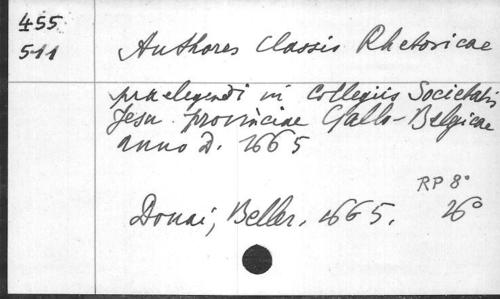 455
511
Authores Classis Rhetoricae
praelegendi in Collegiis Societatis
Jesu provinciae Gallo-Belgicae
anno D. 1665
RP 8°
Douai, Beller, 1665. 16°